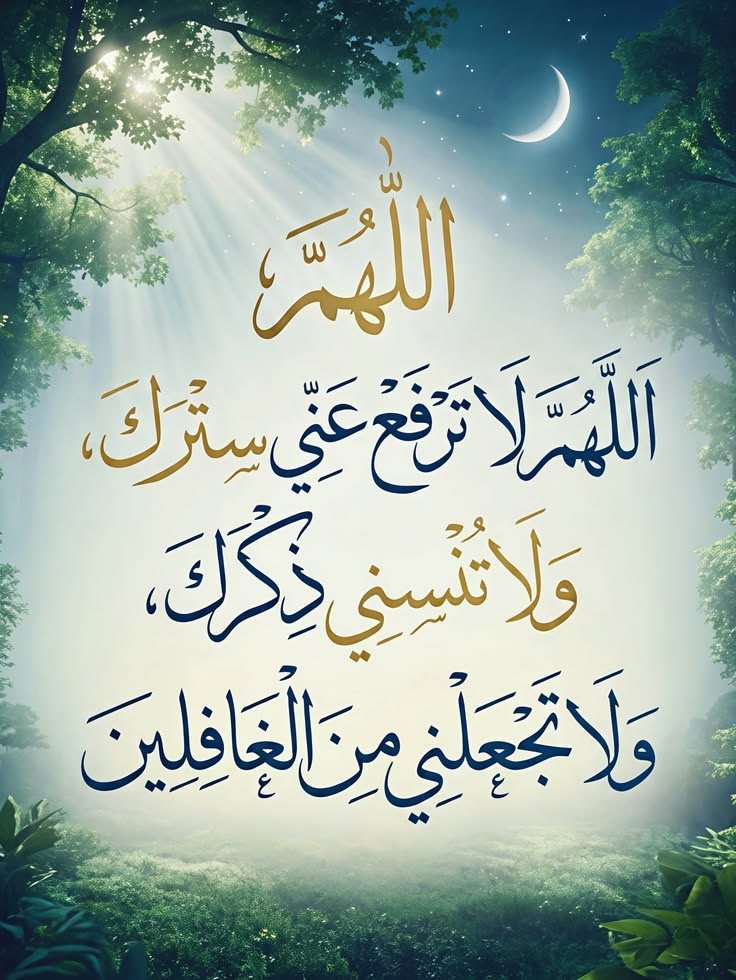 اللّٰهُمَّ،
اَللَّهُمَّ لَا تَرْفَعْ عَنِّي سِتْرَكَ،
وَلَا تُنْسِنِي ذِكْرَكَ،
وَلَا تَجْعَلْنِي مِنَ الْغَافِلِينَ